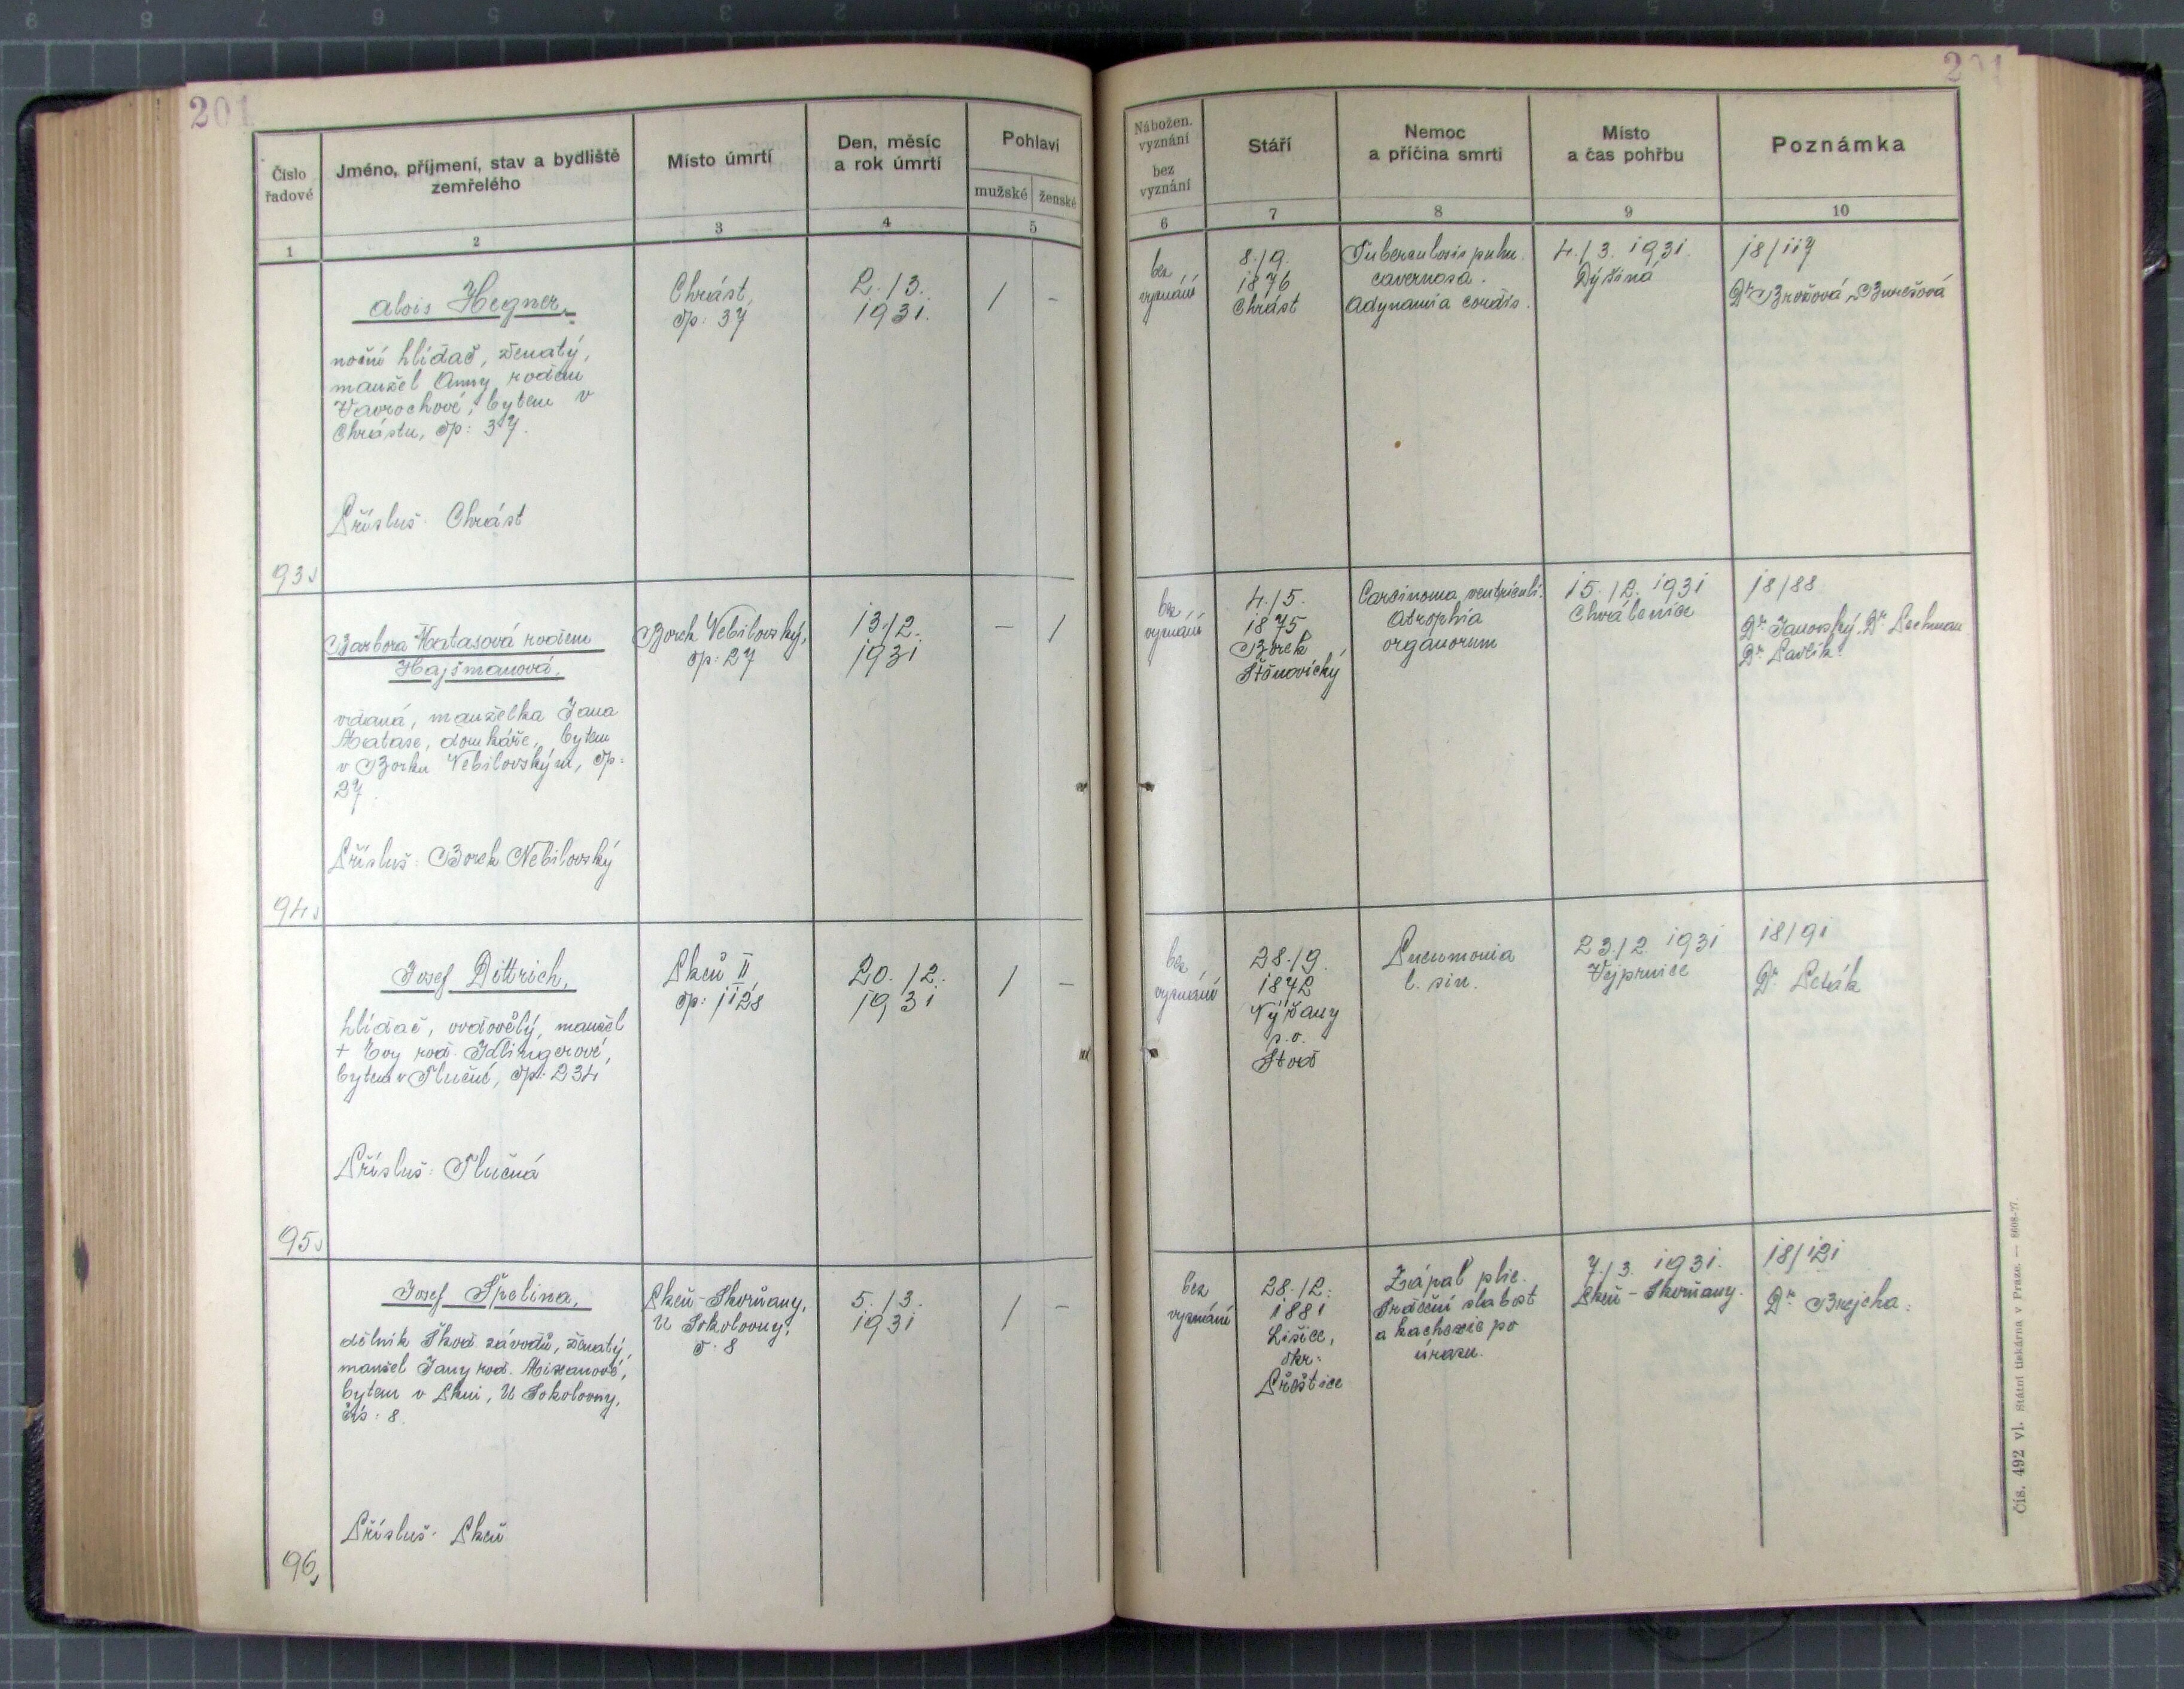 201
201
Číslo
řadové
Jméno, příjmení, stav a bydliště
zemřelého
Místo úmrtí
Den, měsíc
a rok úmrtí
Pohlaví
mužské
ženské
Nábožen.
vyznání
bez
vyznání
Stáří
Nemoc
a příčina smrti
Místo
a čas pohřbu
Poznámka
1
2
3
4
5
6
7
8
9
10
93
Alois Hegner,
noční hlídač, ženatý,
manžel Anny rozen
Vavrochové, bytem v
Chrástu, čp: 37.
Přísluš: Chrást
Chrást,
čp: 37
2./3.
1931.
/
-
bez
vyznání
8./9.
1876
Chrást
Tuberculosis pulm.
cavernosa.
Adynamia cordis.
4./3. 1931.
Dýšina
18/117
Dr Brožová, Burešová
94
Barbora Matasová rozen
Hajšmanová,
vdaná, manželka Jana
Matase, domkáře, bytem
v Borku Nebilovským, čp:
27.
Přísluš: Borek Nebilovský
Borek Nebilovský,
čp: 27
13./2.
1931
-
/
bez
vyznání
4./5.
1875
Borek
Štěnovický
Carcinoma ventriculi.
Atrophia
organorum
15./2. 1931
Chválenice
18/88
Dr Janovský, Dr Pechman
Dr Pavlík.
95
Josef Dittrich,
hlídač, ovdovělý, manžel
+ Evy roz. Idlingerové,
bytem v Tlučné, čp: 234
Přísluš: Tlučná
Plzeň II
čp: 1128
20./2.
1931
/
-
bez
vyznání
28./9.
1872
Nýřany
p. o.
Stod
Pneumonia
l. sin.
23./2. 1931
Vejprnice
18/91
Dr Peták
96
Josef Špelina,
dělník Škod. závodů, ženatý,
manžel Jany roz. Mixanové,
bytem v Plzni, U Sokolovny,
čís: 8.
Přísluš: Plzeň
Plzeň-Skvrňany,
U Sokolovny,
č. 8
5./3.
1931
/
-
bez
vyznání
28./2.
1881
Lišice,
okr:
Přeštice
Zápal plic.
Srdeční slabost
a kachexie po
úrazu.
7./3. 1931.
Plzeň-Skvrňany.
18/121
Dr Brejcha.
Čís. 492 vl. Státní tiskárna v Praze. — 8608-27.